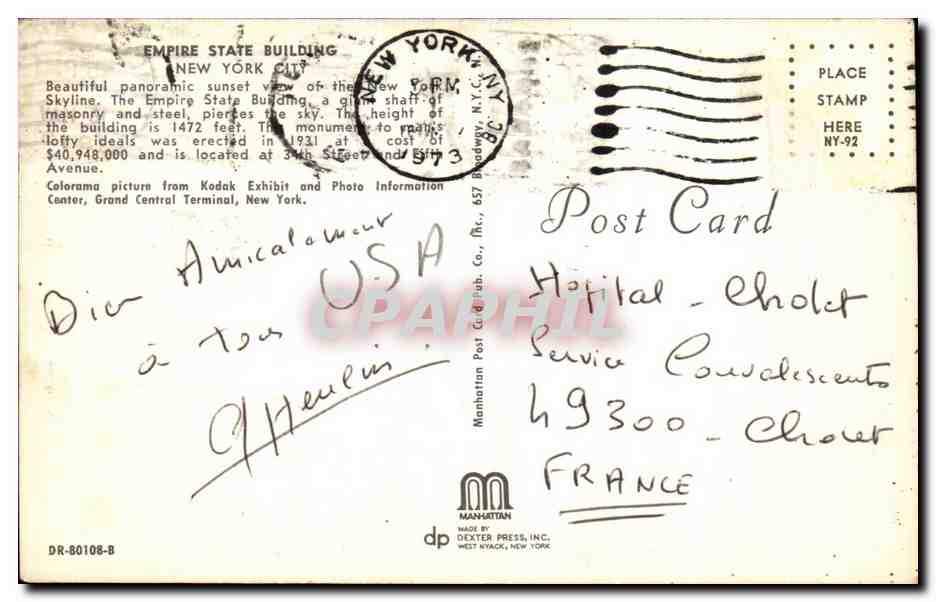 EMPIRE STATE BUILDING
NEW YORK CITY
Beautiful panoramic sunset view of the New York
Skyline. The Empire State Building, a giant shaft of
masonry and steel, pierces the sky. The height of
the building is 1472 feet. The monument to man's
lofty ideals was erected in 1931 at a cost of
$40,948,000 and is located at 34th Street and Fifth
Avenue.
Colorama picture from Kodak Exhibit and Photo Information
Center, Grand Central Terminal, New York.
NEW YORK, NY
PM
1973
PLACE
STAMP
HERE
NY-92
Post Card
Manhattan Post Card Pub. Co., Inc., 657 Broadway, N.Y.C.
Bien Amicalement
à tous USA
Hopital - Cholet
Service Convalescents
49300 - Cholet
FRANCE
CPAPHIL
MANHATTAN
dp MADE BY
DEXTER PRESS, INC.
WEST NYACK, NEW YORK
DR-80108-B